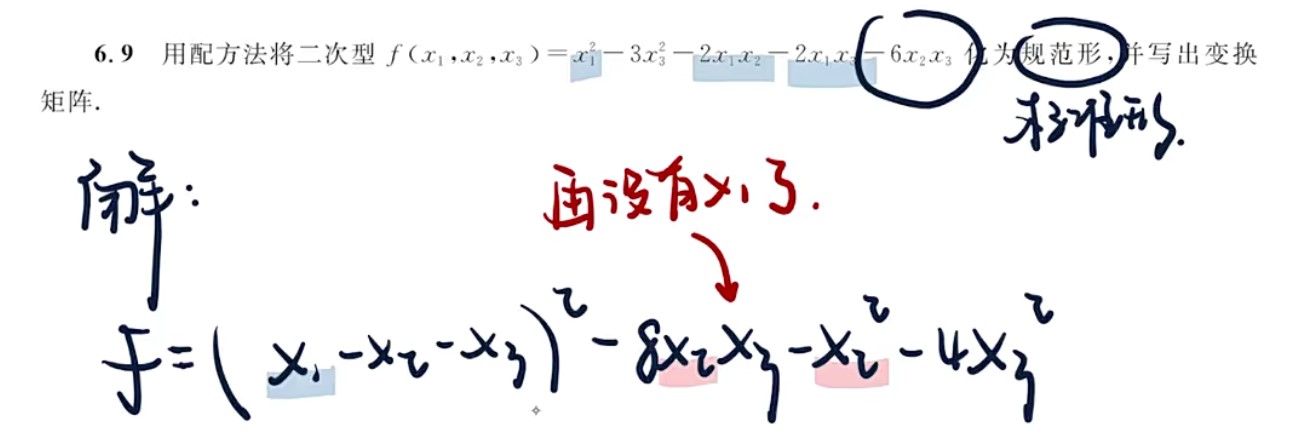 6.9 用配方法将二次型 f(x₁,x₂,x₃)=x₁²-3x₃²-2x₁x₂-2x₁x₃-6x₂x₃ 化为规范形,并写出变换
矩阵.
标准形.
解:
再没有x₁了.
f=(x₁-x₂-x₃)²-8x₂x₃-x₂²-4x₃²